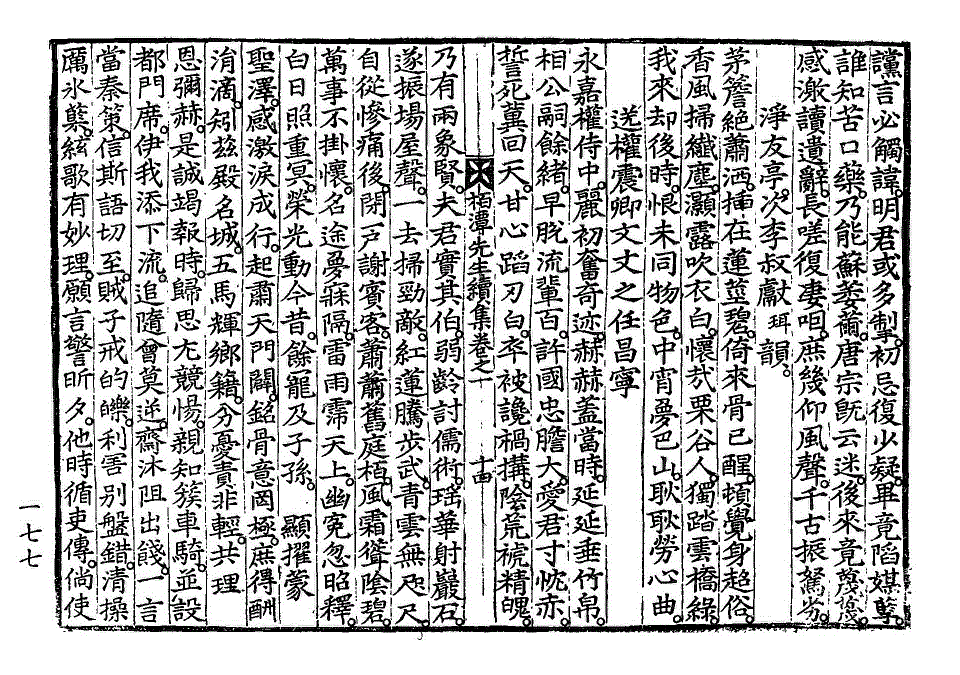 讜言必觸諱明君或多掣初忌復少疑畢竟陷媒孼
誰知苦口藥乃能蘇萎薾唐宗旣云迷後來竟蔑蔑
感激讀遺辭長嗟復凄咽庶幾仰風聲千古振駑劣
淨友亭次李叔獻珥韻
茅簷絶蕭洒揷在蓮莖碧倚來骨已醒頓覺身超俗
香風掃纖塵灝露吹衣白懷哉栗谷人獨踏雲橋綠
我來却後時恨未同物色中宵夢巴山耿耿勞心曲
送權震卿文丈之任昌寧
永嘉權侍中麗初奮奇迹赫赫蓋當時延延垂竹帛
相公嗣餘緖早脫流輩百許國忠膽大愛君寸忱赤
誓死冀回天甘心蹈刃白卒被讒禍搆陰荒褫精魄
栢潭先生續集卷之一 十四
乃有兩象賢夫君實其伯弱齡討儒術瑤華射巖石
遂振場屋聲一去掃勁敵紅蓮騰步武靑雲無咫尺
自從慘痛後閉戶謝賓客蕭蕭舊庭栢風霜聳陰碧
萬事不掛懷名途夢寐隔雷雨霈天上幽冤忽昭釋
白日照重冥榮光動今昔餘寵及子孫 顯擢蒙
聖澤感激淚成行起肅天門闢銘骨意罔極庶得酬
涓滴矧玆殿名城五馬輝鄕籍分憂責非輕共理
恩彌赫是誠竭報時歸思尤競惕親知簇車騎並設
都門席伊我添下流追隨曾莫逆齋沐阻出餞一言
當秦策信斯語切至賊子戒的皪利害別盤錯淸操
厲氷蘗絃歌有妙理願言警昕夕他時循吏傳倘使
一七七